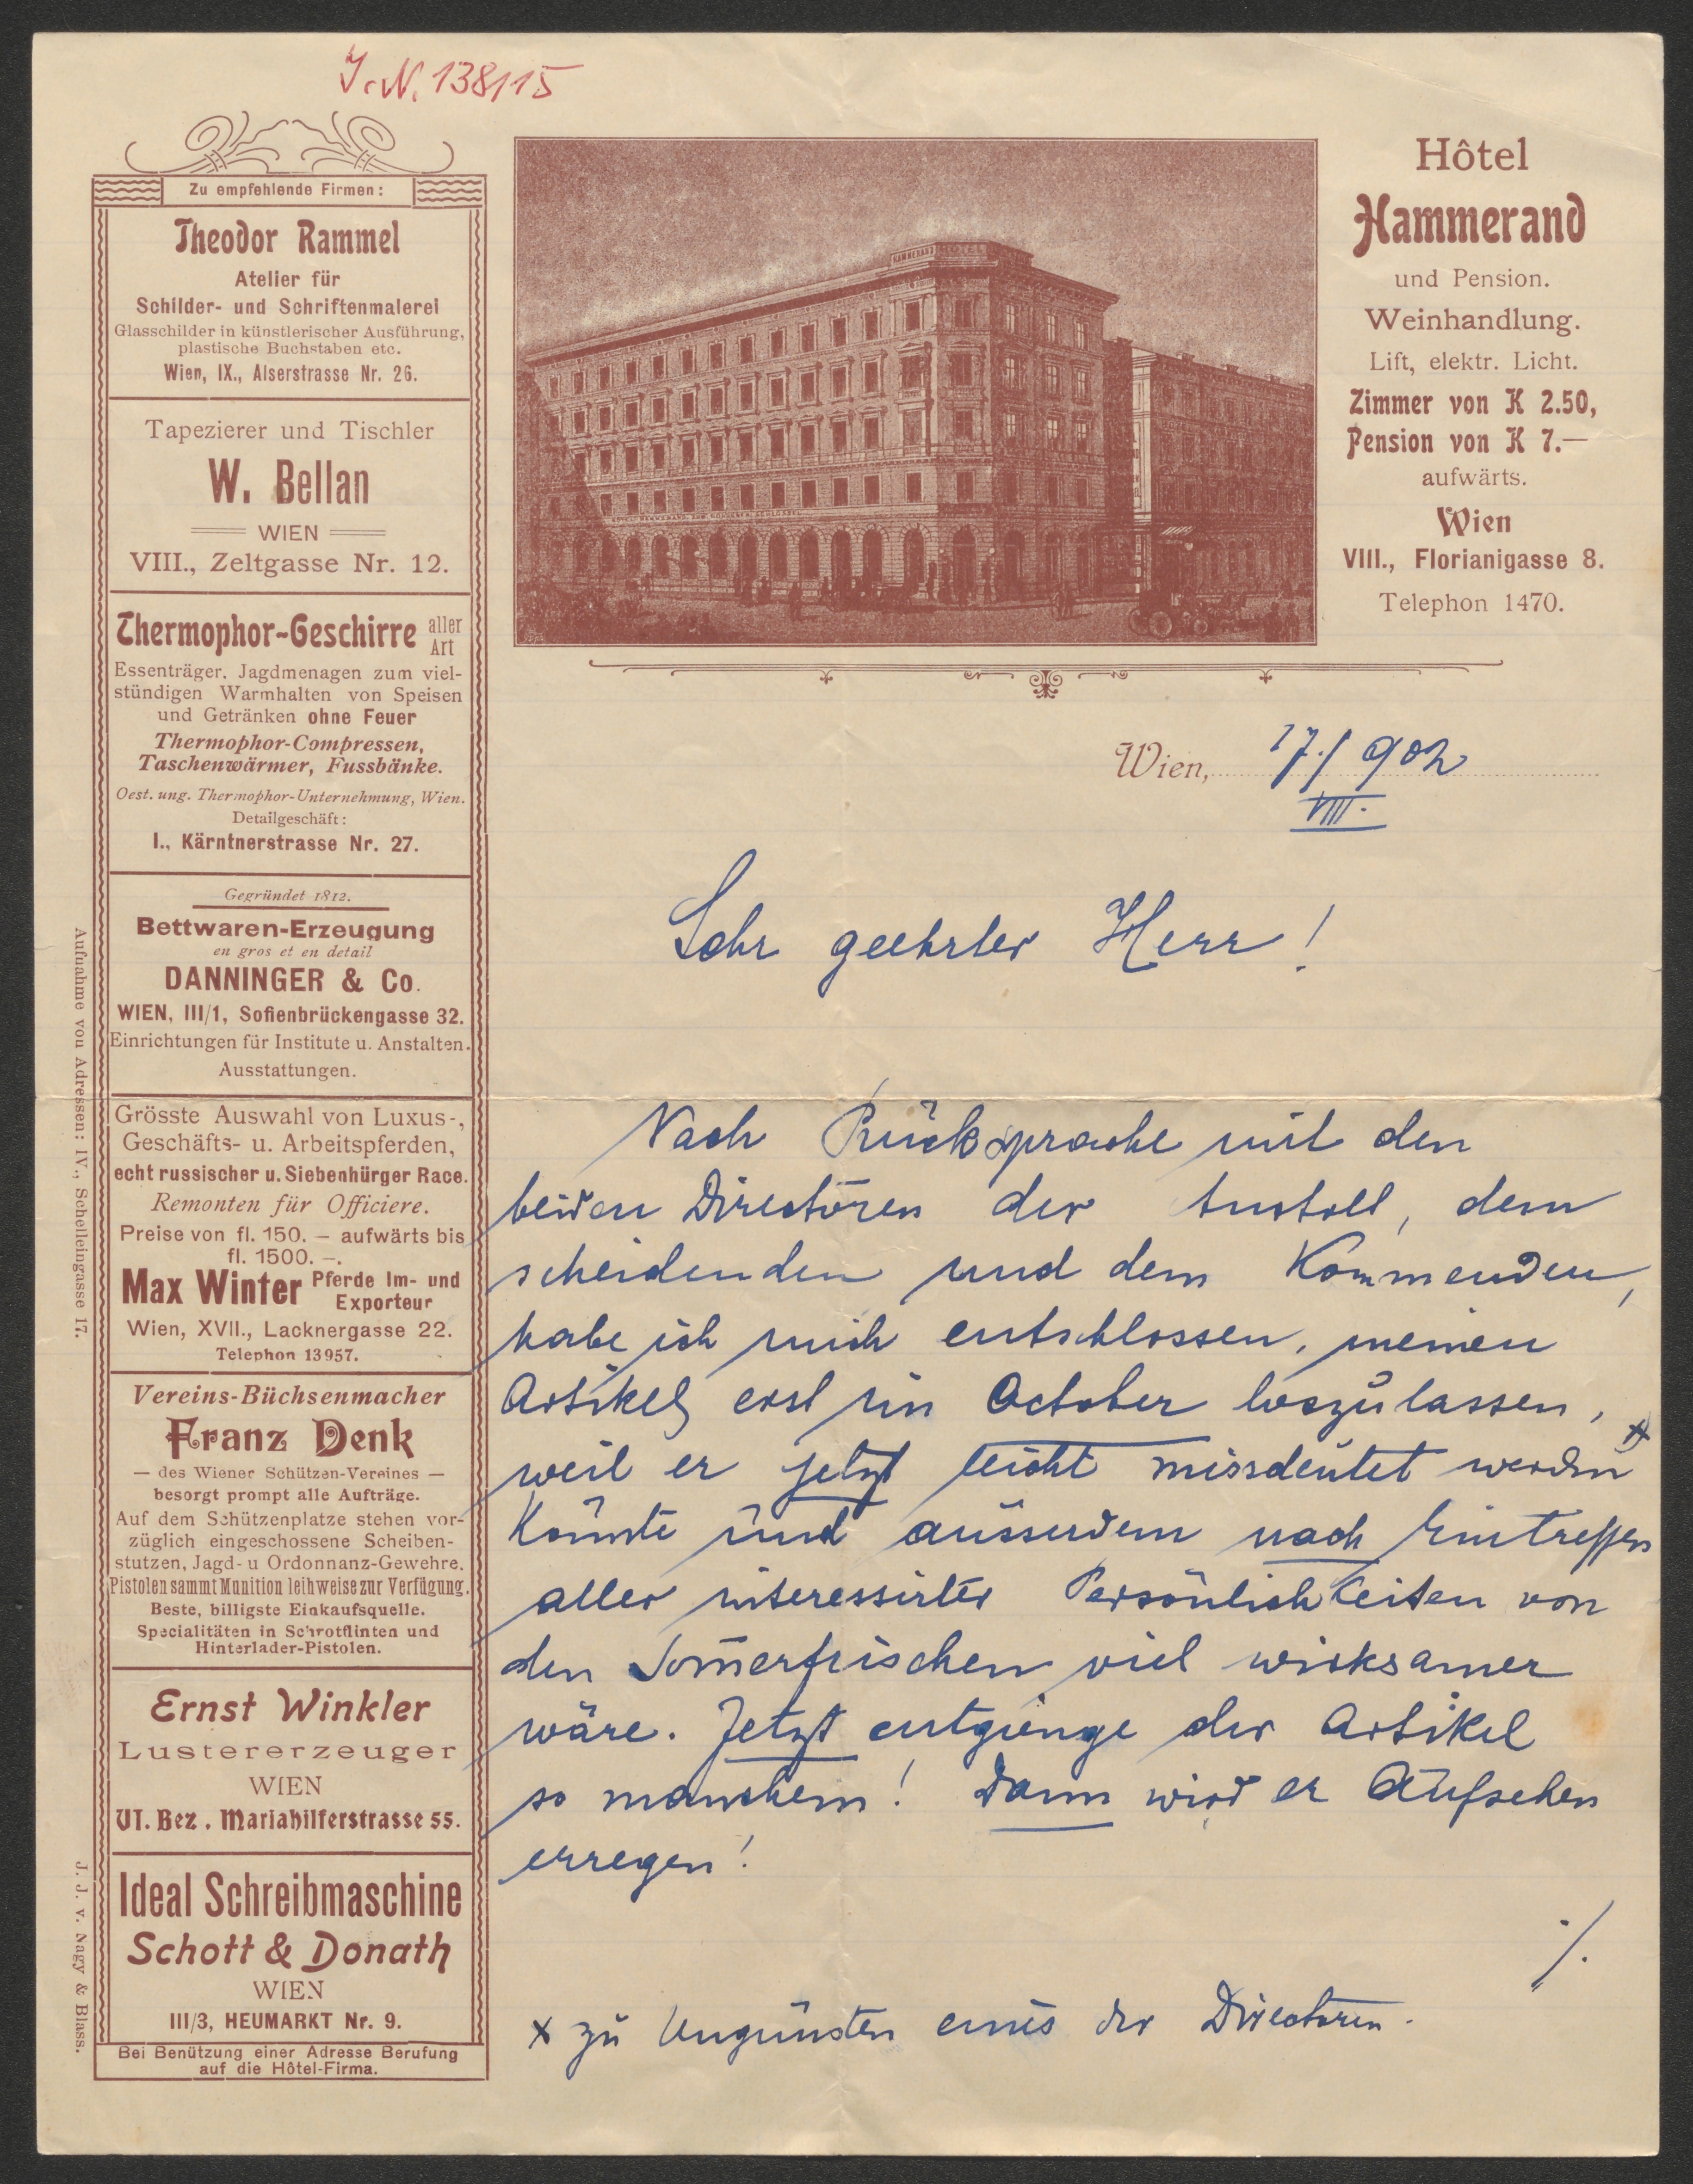 J.N. 138115
Zu empfehlende Firmen:
Theodor Rammel
Atelier für
Schilder- und Schriftenmalerei
Glasschilder in künstlerischer Ausführung,
plastische Buchstaben etc.
Wien, IX., Alserstrasse Nr. 26.
Tapezierer und Tischler
W. Bellan
WIEN
VIII., Zeltgasse Nr. 12.
Thermophor-Geschirre aller Art
Essenträger, Jagdmenagen zum viel-
stündigen Warmhalten von Speisen
und Getränken ohne Feuer
Thermophor-Compressen,
Taschenwärmer, Fussbänke.
Oest. ung. Thermophor-Unternehmung, Wien.
Detailgeschäft:
I., Kärntnerstrasse Nr. 27.
Gegründet 1812.
Bettwaren-Erzeugung
en gros et en detail
DANNINGER & Co.
WIEN, III/1, Sofienbrückengasse 32.
Einrichtungen für Institute u. Anstalten.
Ausstattungen.
Grösste Auswahl von Luxus-,
Geschäfts- u. Arbeitspferden,
echt russischer u. Siebenbürger Race.
Remonten für Officiere.
Preise von fl. 150. — aufwärts bis
fl. 1500. —.
Max Winter Pferde Im- und
Exporteur
Wien, XVII., Lacknergasse 22.
Telephon 13957.
Vereins-Büchsenmacher
Franz Denk
— des Wiener Schützen-Vereines —
besorgt prompt alle Aufträge.
Auf dem Schützenplatze stehen vor-
züglich eingeschossene Scheiben-
stutzen, Jagd- u Ordonnanz-Gewehre.
Pistolen sammt Munition leihweise zur Verfügung.
Beste, billigste Einkaufsquelle.
Specialitäten in Schrotflinten und
Hinterlader-Pistolen.
Ernst Winkler
Lustererzeuger
WIEN
VI. Bez. Mariahilferstrasse 55.
Ideal Schreibmaschine
Schott & Donath
WIEN
III/3, HEUMARKT Nr. 9.
Bei Benützung einer Adresse Berufung
auf die Hôtel-Firma.
Aufnahme von Adressen: IV., Schelleingasse 17.
J. J. v. Nagy & Blass.
HAMMERAND HOTEL
Hôtel
Hammerand
und Pension.
Weinhandlung.
Lift, elektr. Licht.
Zimmer von K 2.50,
Pension von K 7.—
aufwärts.
Wien
VIII., Florianigasse 8.
Telephon 1470.
Wien, 17./ 902
VIII.
Sehr geehrter Herr!
Nach Rücksprache mit den
beiden Directoren der Anstalt, dem
scheidenden und dem Kommenden,
habe ich mich entschlossen, meinen
Artikel erst im October loszulassen,
weil er jetzt leicht missdeutet werden x
könnte und ausserdem nach Eintreffen
aller interessirter Persönlichkeiten von
den Som̄erfrischen viel wirksamer
wäre. Jetzt entgienge der Artikel
so manchem! Dann wird er Aufsehen
erregen!
./.
x zu Ungunsten eines der Directoren.